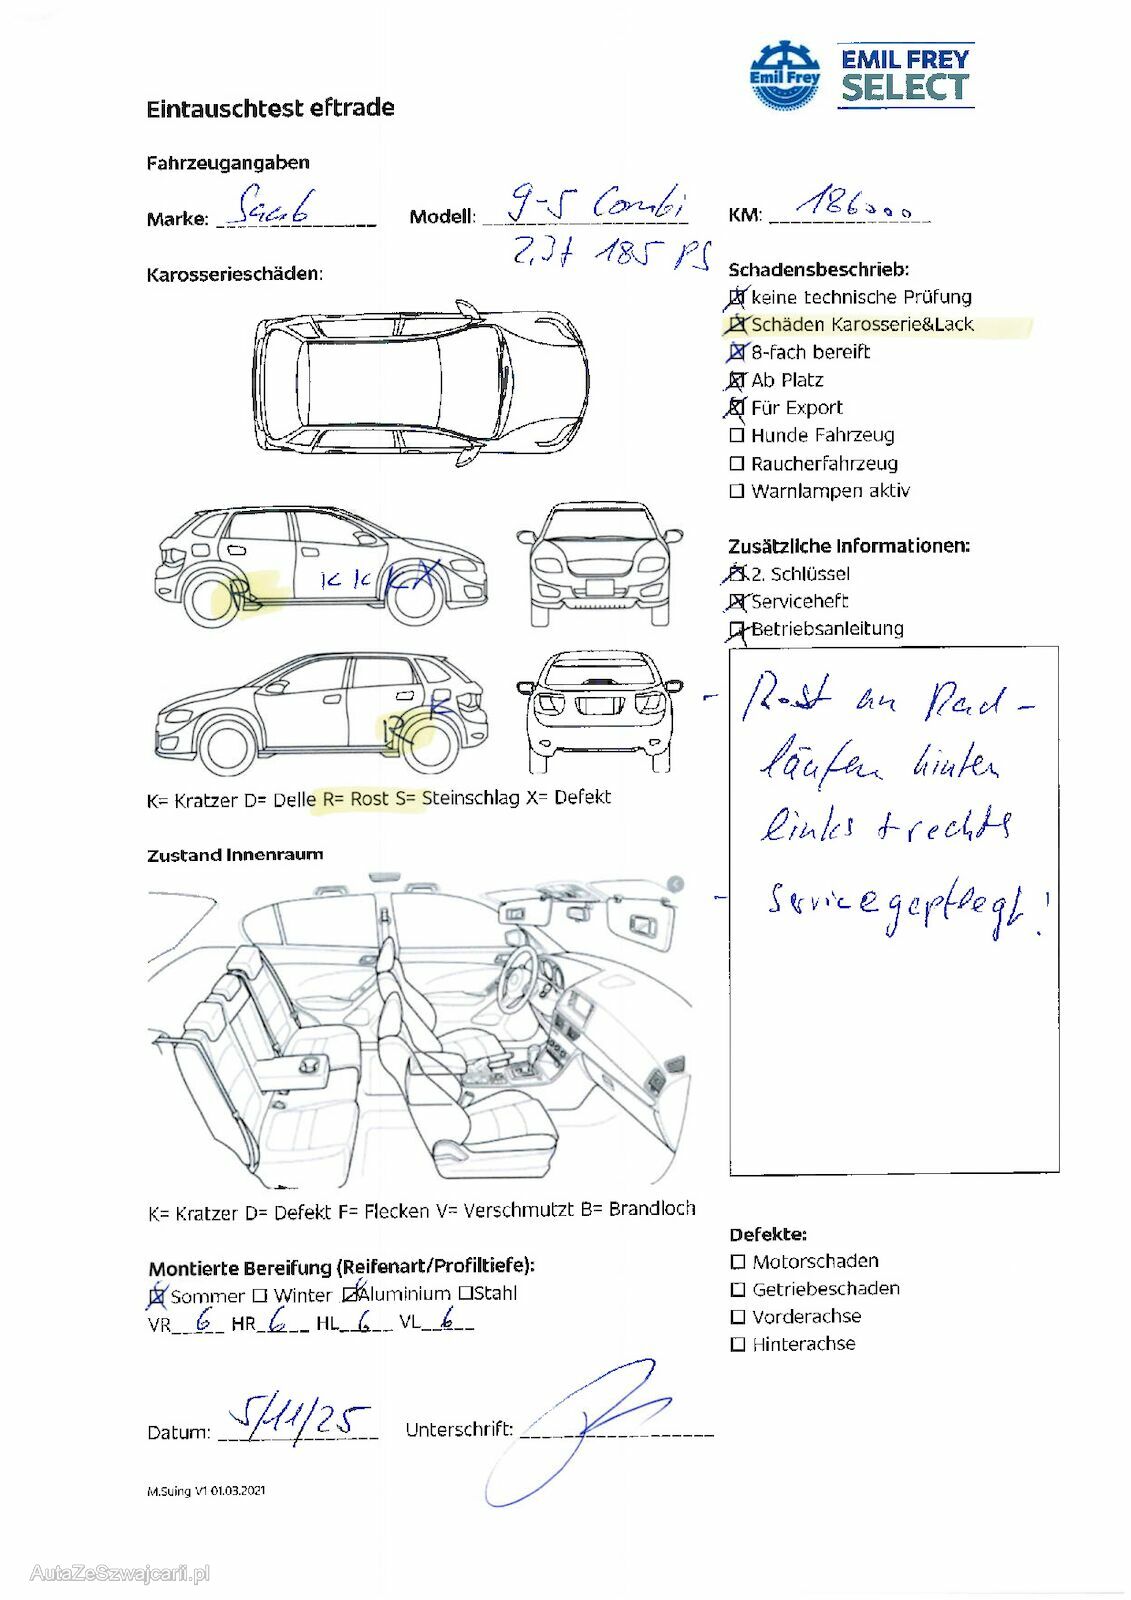 Emil Frey
EMIL FREY
SELECT
Eintauschtest eftrade
Fahrzeugangaben
Marke: Saab Modell: 9-5 Combi KM: 186000
2,3t 185 PS
Karosserieschäden:
Schadensbeschrieb:
keine technische Prüfung
Schäden Karosserie&Lack
8-fach bereift
Ab Platz
Für Export
Hunde Fahrzeug
Raucherfahrzeug
Warnlampen aktiv
R K K K X
Zusätzliche Informationen:
2. Schlüssel
Serviceheft
Betriebsanleitung
R K
- Rost an Rad-
läufen hinten
links + rechts
- Servicegepflegt!
K= Kratzer D= Delle R= Rost S= Steinschlag X= Defekt
Zustand Innenraum
K= Kratzer D= Defekt F= Flecken V= Verschmutzt B= Brandloch
Montierte Bereifung (Reifenart/Profiltiefe):
Sommer Winter Aluminium Stahl
VR 6 HR 6 HL 6 VL 6
Defekte:
Motorschaden
Getriebeschaden
Vorderachse
Hinterachse
Datum: 5/11/25 Unterschrift:
M.Suing V1 01.03.2021
AutaZeSzwajcarii.pl